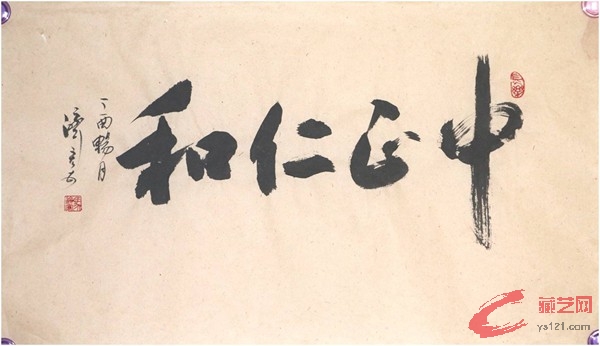 中正仁和
丁酉暢月
藏艺网
ys121.com